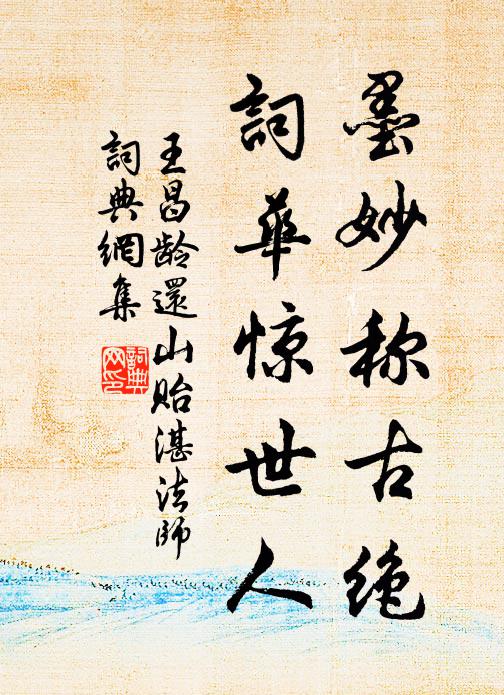 墨妙称古绝
詞華惊世人
王昌龄還山貽湛法師
詞典網集
詞典网印